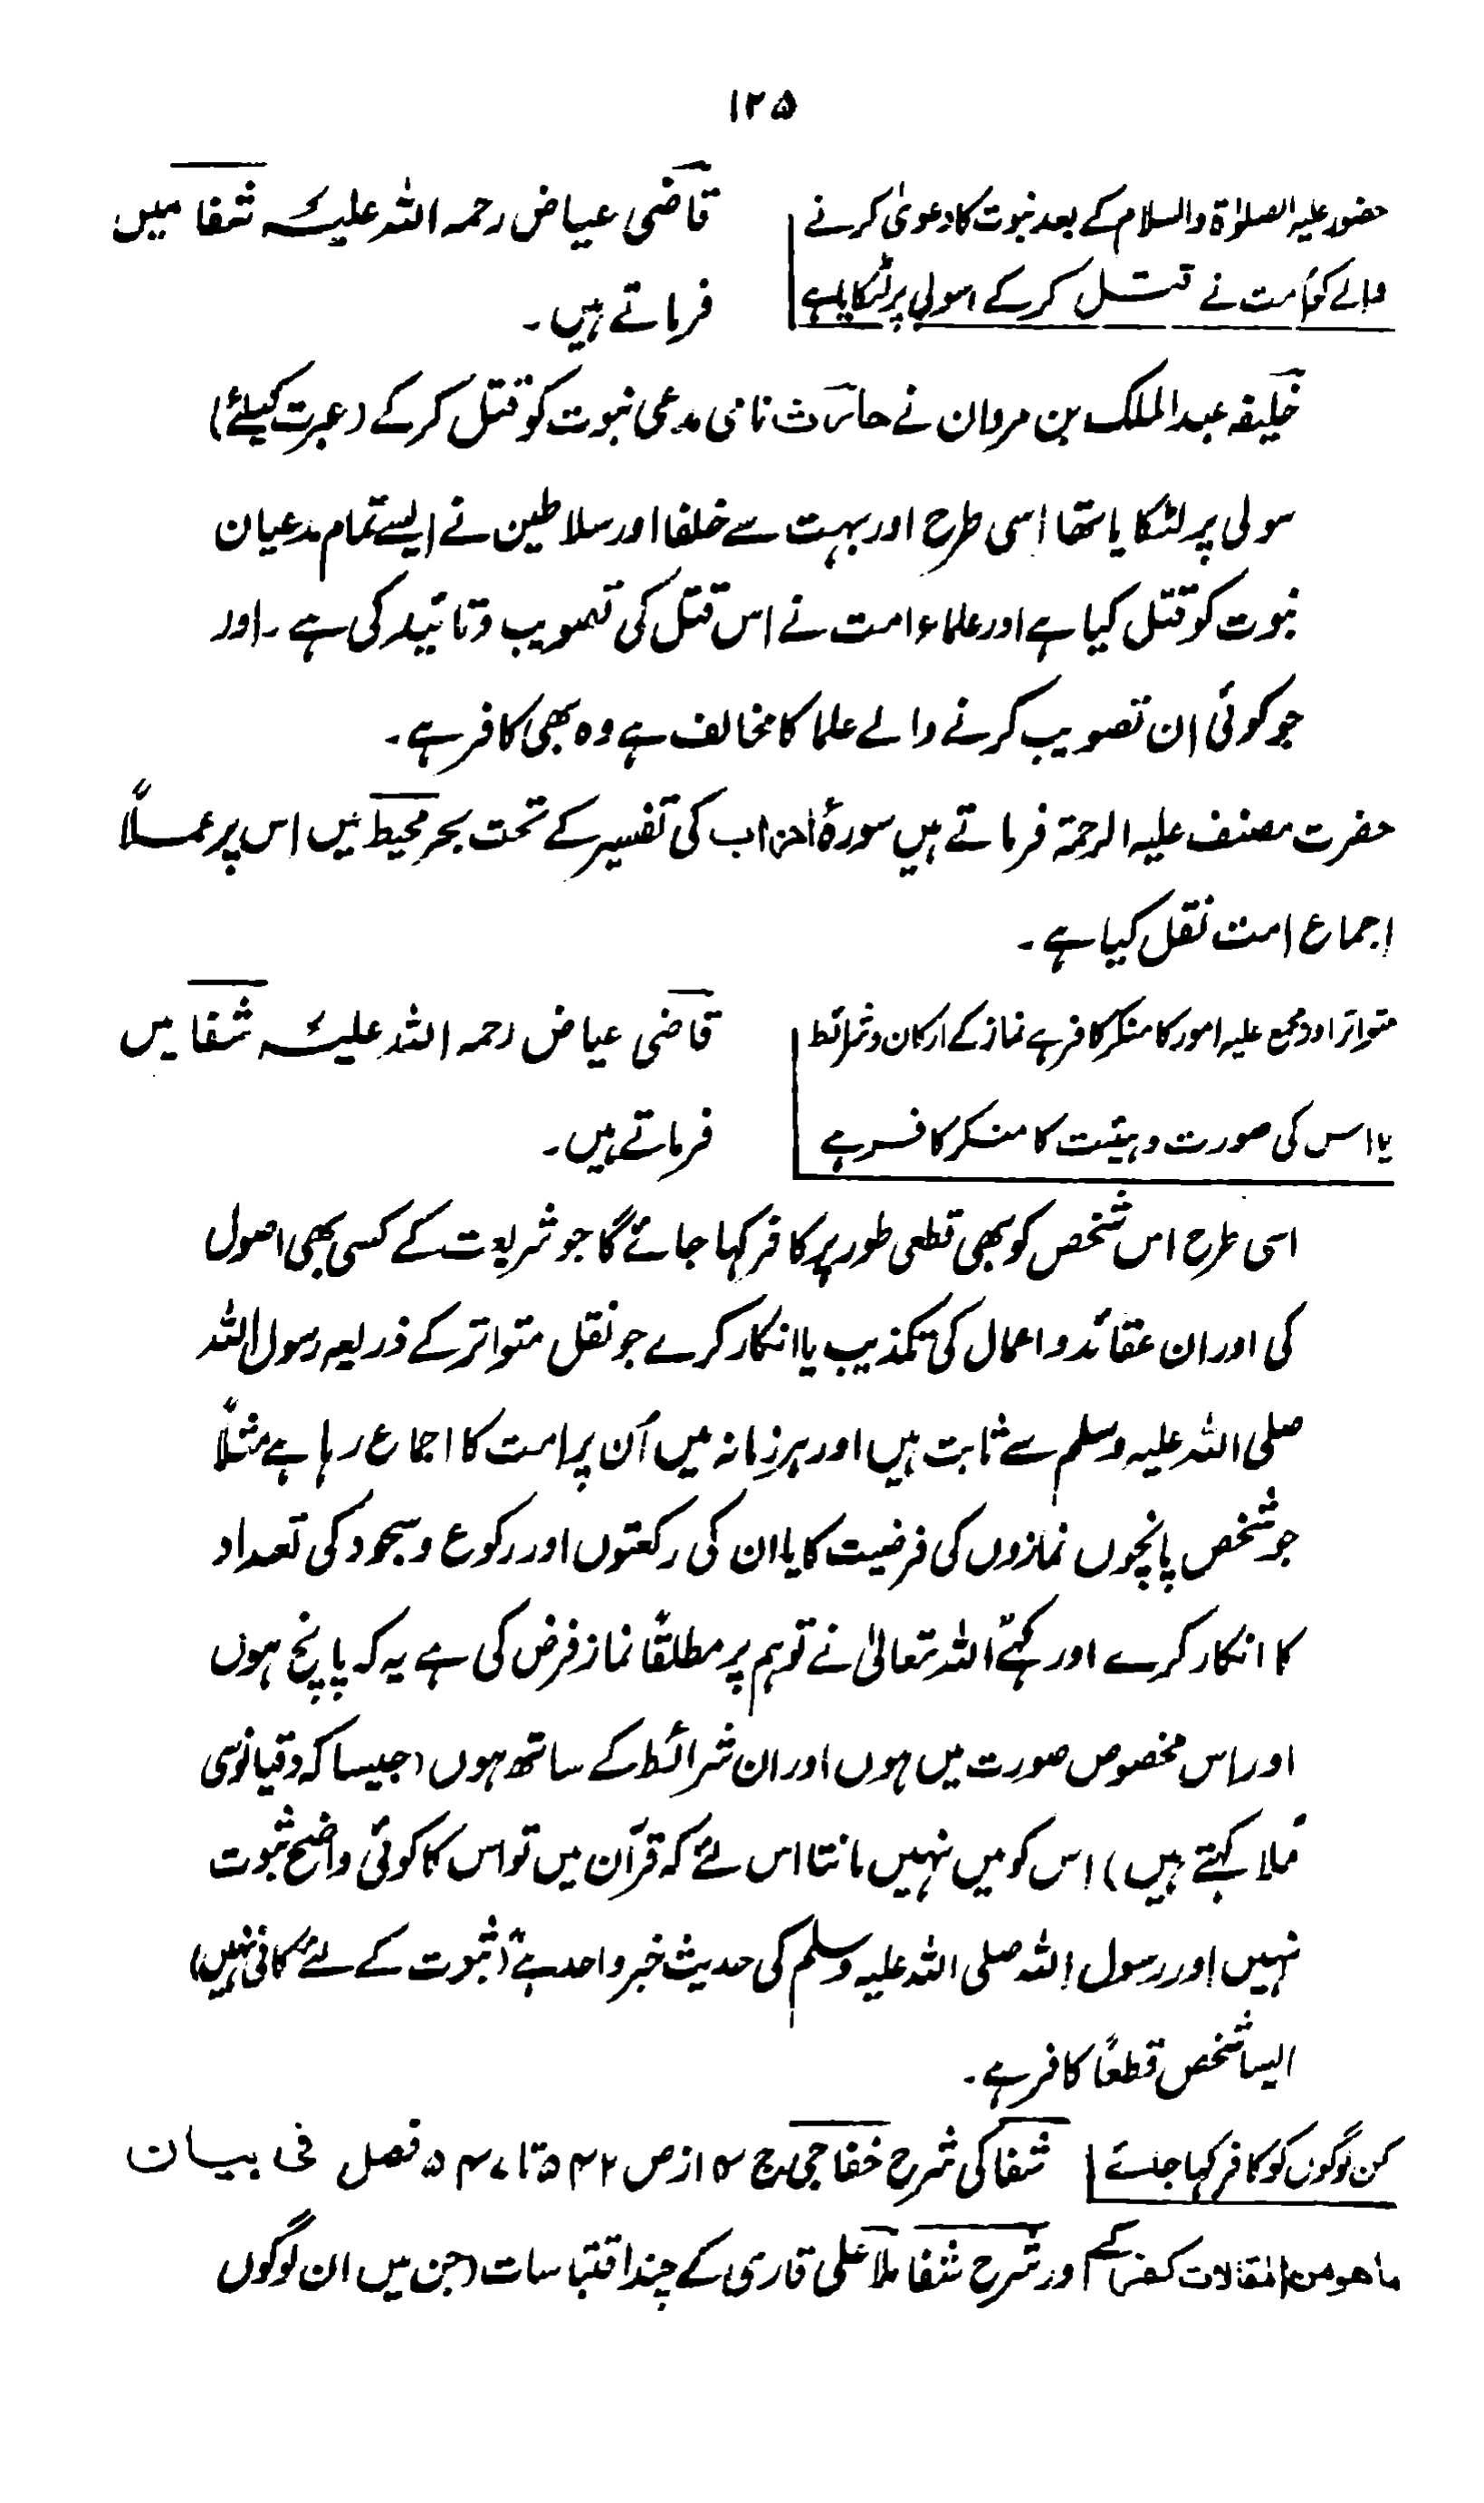 ۱۲۵
حضور علیہ الصلوٰۃ والسلام کے بعد نبوت کا دعویٰ کرنے
والے کو امت نے قتل کر کے سولی پر لٹکایا ہے
قاضی عیاض رحمہ اللہ علیہ شفا میں
فرماتے ہیں۔
خلیفہ عبدالملک بن مروان نے حارث نامی مدعی نبوت کو قتل کر کے (عبرت کیلئے)
سولی پر لٹکایا تھا اسی طرح اور بہت سے خلفا اور سلاطین نے ایسے تمام مدعیان
نبوت کو قتل کیا ہے اور علماء امت نے اس قتل کی تصویب و تائید کی ہے۔ اور
جو کوئی ان تصویب کرنے والے علما کا مخالف ہے وہ بھی کافر ہے۔
حضرت مصنف علیہ الرحمۃ فرماتے ہیں سورۂ احزاب کی تفسیر کے تحت بحر محیط میں اس پر عملاً
اجماع امت نقل کیا ہے۔
متواتر اور مجمع علیہ امور کا منکر کافر ہے نماز کے ارکان و شرائط
یا اس کی صورت و ہیئت کا منکر کافر ہے
قاضی عیاض رحمہ اللہ علیہ شفا میں
فرماتے ہیں۔
اسی طرح اس شخص کو بھی قطعی طور پر کافر کہا جائے گا جو شریعت کے کسی بھی اصول
کی اور ان عقائد و اعمال کی تکذیب یا انکار کرے جو نقل متواتر کے ذریعہ رسول اللہ
صلی اللہ علیہ وسلم سے ثابت ہیں اور ہر زمانہ میں اُن پر امت کا اجماع رہا ہے مثلاً
جو شخص پانچوں نمازوں کی فرضیت کا یا ان کی رکعتوں اور رکوع و سجود کی تعداد
کا انکار کرے اور کہے اللہ تعالیٰ نے تو ہم پر مطلقاً نماز فرض کی ہے یہ کہ پانچ ہوں
اور اس مخصوص صورت میں ہوں اور ان شرائط کے ساتھ ہوں (جیسا کہ دقیانوسی
مُلا کہتے ہیں) اس کو میں نہیں مانتا اس لئے کہ قرآن میں تو اس کا کوئی واضح ثبوت
نہیں اور رسول اللہ صلی اللہ علیہ وسلم کی حدیث خبر واحد ہے (ثبوت کے لئے کافی نہیں)
ایسا شخص قطعاً کافر ہے۔
کن لوگوں کو کافر کہا جائے
شفا کی شرح خفاجی ج ۴ از ص ۵۴۲ تا ۵۴۷ فصل فی بیان
ما ھو من المقالات کفر کے اور شرح شفا ملا علی قاری کے چند اقتباسات (جن میں ان لوگوں